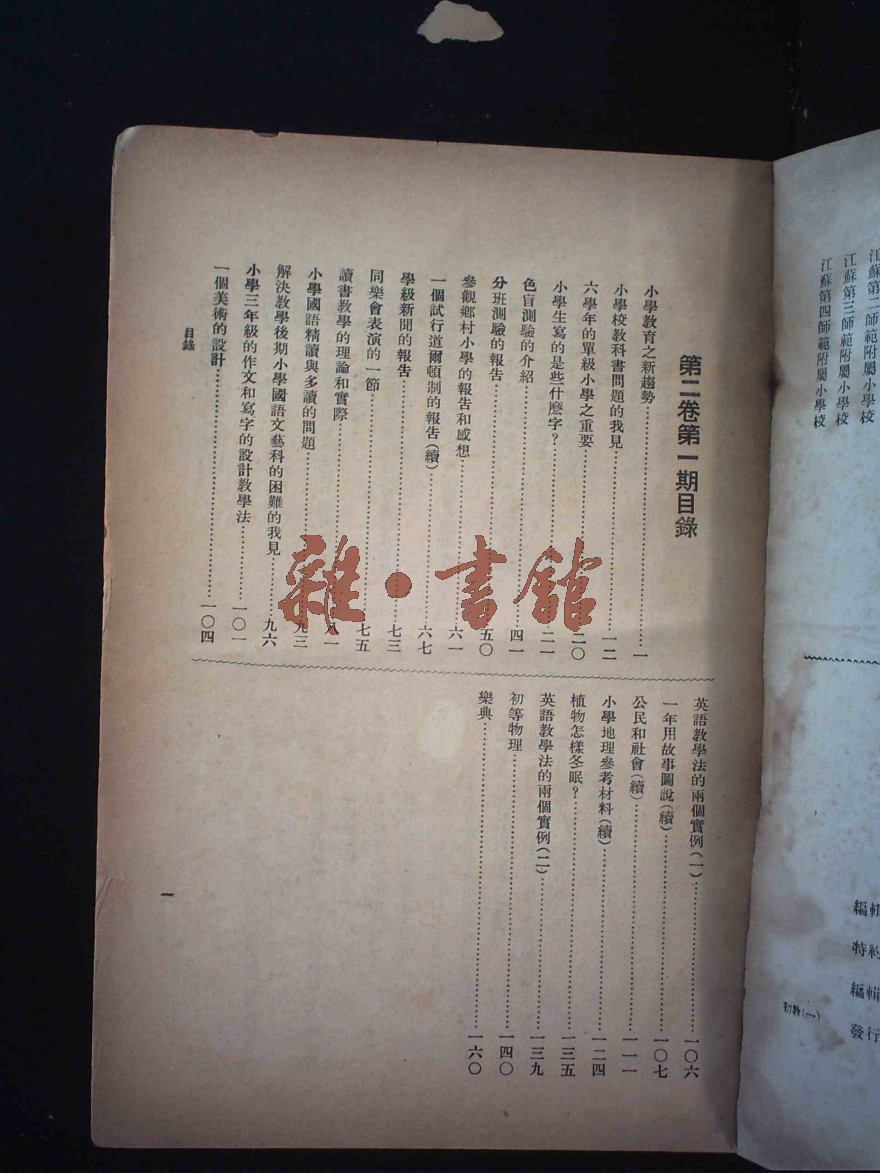 江蘇第二師範附屬小學校
江蘇第三師範附屬小學校
江蘇第四師範附屬小學校
編輯
特約
編輯
發行
第二卷第一期目錄
小學教育之新趨勢……一
小學校教科書問題的我見……一二
六學年的單級小學之重要……二〇
小學生寫的是些什麼字？……二一
色盲測驗的介紹……四一
分班測驗的報告……五〇
參觀鄉村小學的報告和感想……六一
一個試行道爾頓制的報告(續)……六七
學級新聞的報告……七三
同樂會表演的一節……七五
讀書教學的理論和實際……八一
小學國語精讀與多讀的問題……九三
解決教學後期小學國語文藝科的困難的我見……九六
小學三年級的作文和寫字的設計教學法……一〇一
一個美術的設計……一〇四
英語教學法的兩個實例(一)……一〇六
一年用故事圖說(續)……一〇七
公民和社會(續)……一一一
小學地理參考材料(續)……一二四
植物怎樣冬眠？……一三五
英語教學法的兩個實例(二)……一三九
初等物理……一四〇
樂典……一六〇
目錄
一
雜·書館